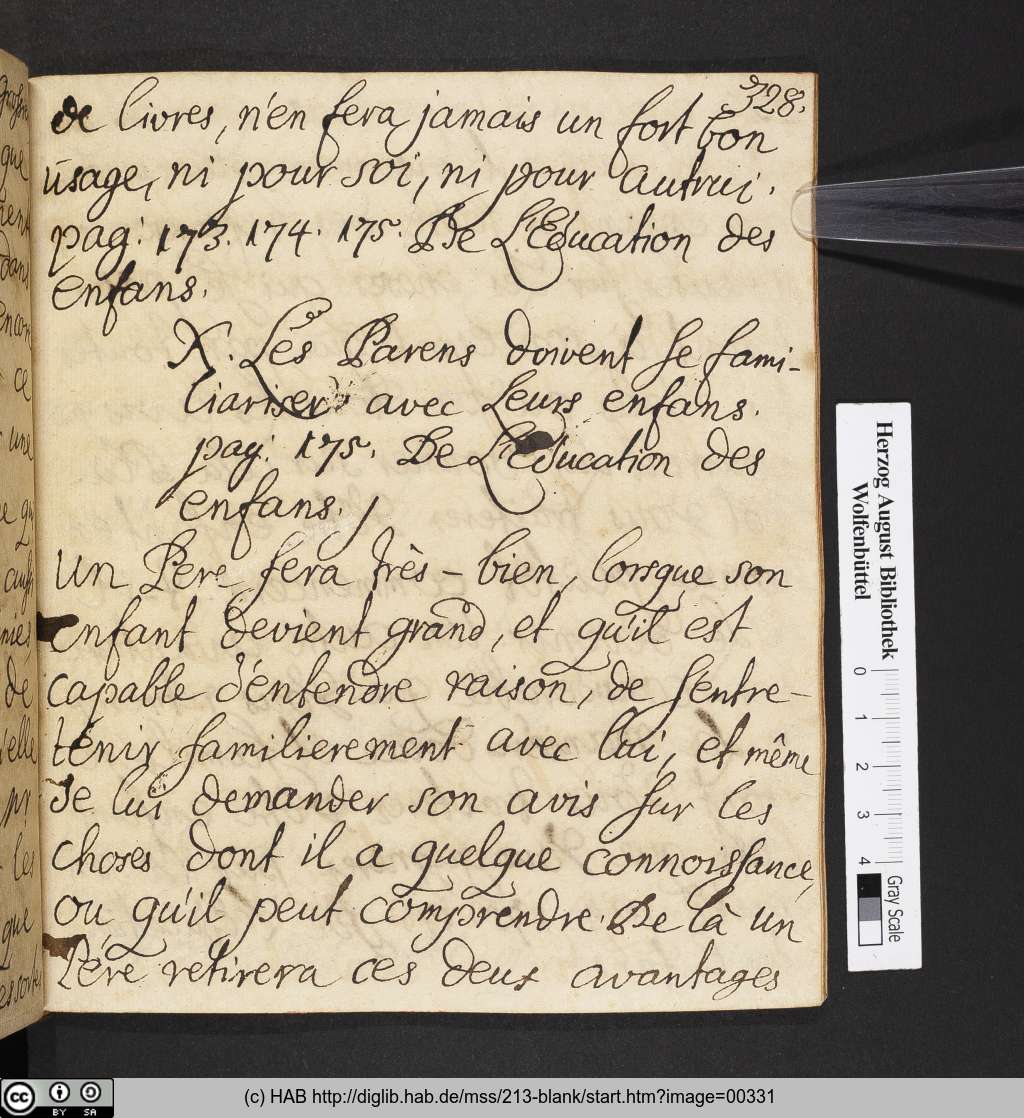 328.
de livres, n'en fera jamais un fort bon
usage, ni pour soi, ni pour autrui.
pag: 173. 174. 175. De L'Education des
enfans.
X. Les Parens doivent se fami-
liariser avec Leurs enfans.
pag: 175. De L'Education des
enfans.
Un Pere fera très-bien, lorsque son
enfant devient grand, et qu'il est
capable d'entendre raison, de s'entre-
tenir familierement avec lui, et même
de lui demander son avis sur les
choses dont il a quelque connoissance,
ou qu'il peut comprendre. De là un
Pére retirera ces deux avantages
Herzog August Bibliothek
Wolfenbüttel
0 1 2 3 4
Gray Scale
(c) HAB http://diglib.hab.de/mss/213-blank/start.htm?image=00331
cc BY SA